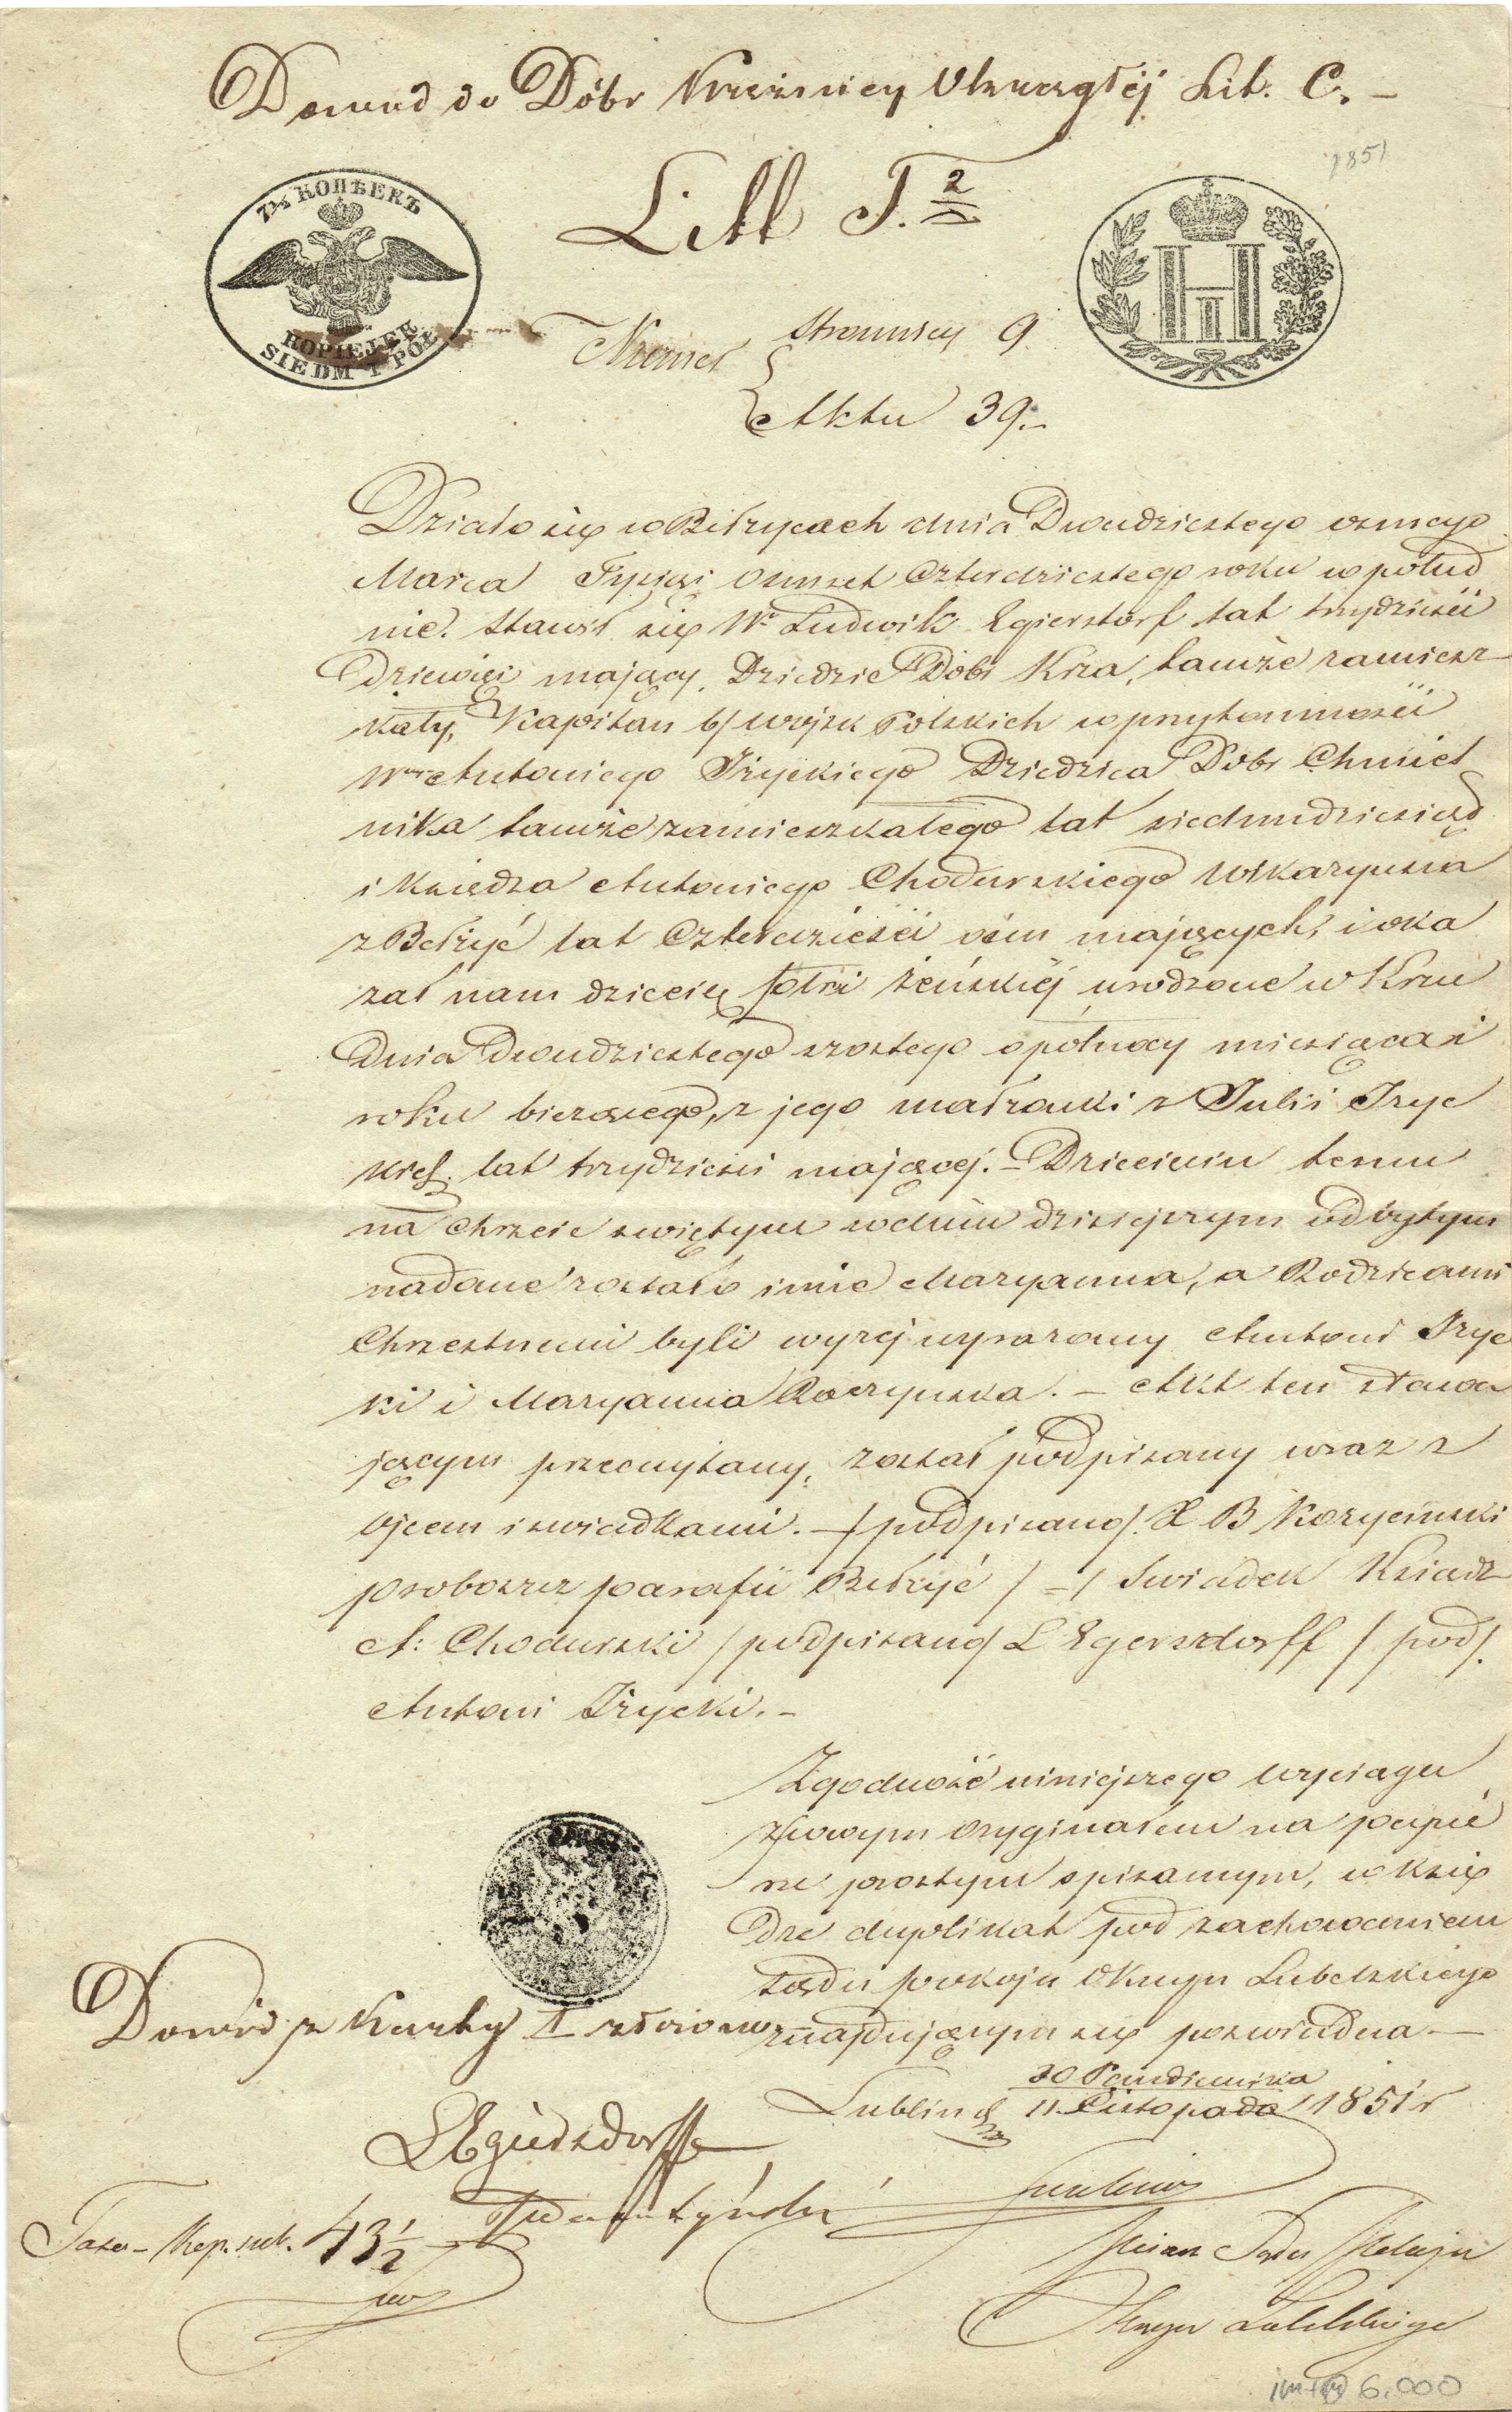 Dowod do Dóbr Krężnicy Okrągłéj Lit. C. –
1851
7½ КОПѢЕКЪ
Litt J. 2
KOPIEJEK
SIEDM I PÓŁ
H
I
Numer
Stronnicy 9
Aktu 39. –
Działo się w Bełżycach dnia Dwudziestego osmego
Marca Tysiąc osmset Czterdziestego roku w połud
nie. Stawił się Wy Ludwik Egierstorf lat trzydzieści
Dziewięć mający, Dziedzic Dóbr Krza, tamże zamiesz
kały, Kapitan b/ wojsk Polskich w przytomności
Wgo Antoniego Iżyckiego Dziedzica Dobr Chmiel
nika tamże zamieszkałego lat siedmdziesiąd
i Księdza Antoniego Chodurskiego Wikaryusza
z Bełżyć lat Czterdzieści osm mających, i oka
zał nam dziecię płci żeńskiéj urodzone w Krzu
Dnia Dwudziestego szostego o połnocy miesiąca i
roku bieżącego, z jego małżonki z Julii Iżyc
kich lat trzydzieści mającej. – Dziecięciu temu
na Chrzcie swiętym w dniu dzisiejszym odbytym
nadane zostało imie Maryanna, a Rodzicami
Chrzestnemi byli wyżej wyrażony Antoni Iżyc
ki i Maryanna Raczyńska. – Akt ten stawa
jącym przeczytany, został podpisany wraz z
ojcem i swiadkami. – /podpisano/. X B Korycinski
proboszcz parafii Bełżyć / – / Swiadek Ksiądz
A: Chodurski /podpisano/ L Egersdorff /pod/.
Antoni Iżycki. –
Zgodność niniejszego wyciągu
z swoym oryginałem na papie
rze prostym spisanym, w Księ
dze duplikat pod zachowaniem
Sądu pokoju Okręgu Lubelskiego
znajdującym się poswiadcza –
Dowód z Karty I złożono
30 Pazdziernika
Lublin d 11 Listopada 1851 r
LEgiersdorff
Pisarz Sądu Pokoju
Taxa – Kop. sr. 43½
Okręgu Lubelskiego
6.000